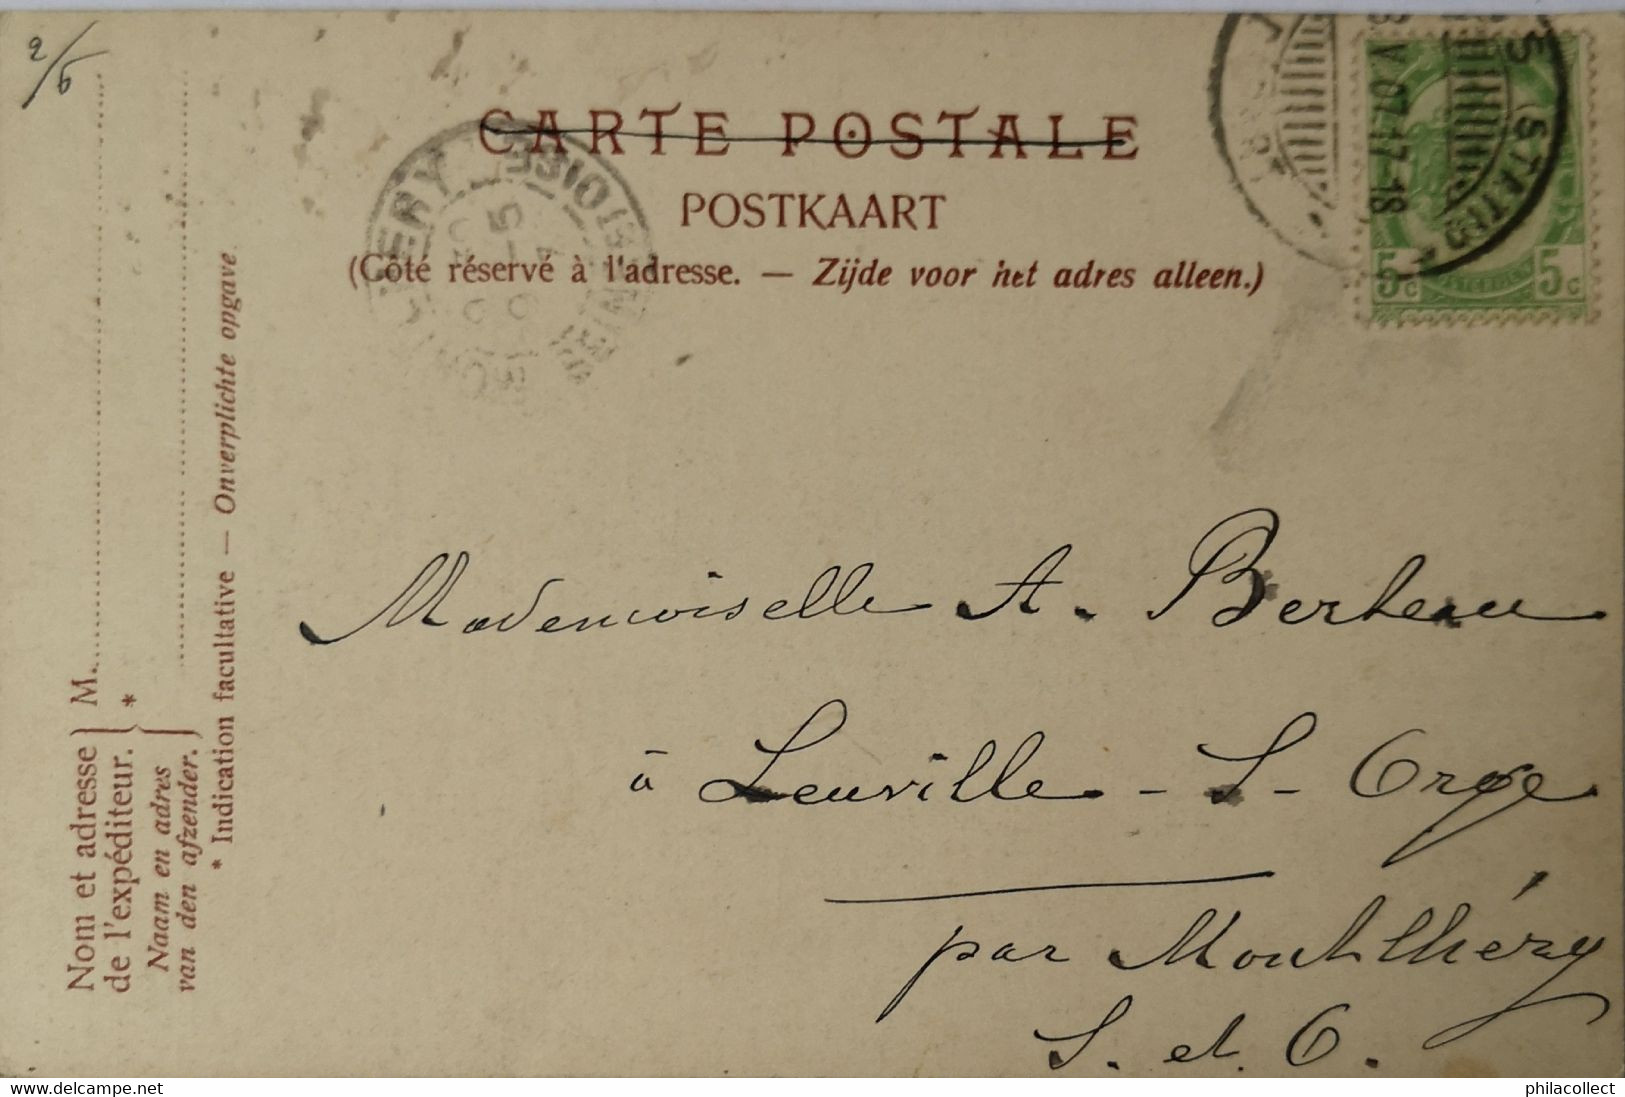 2/5
CARTE POSTALE
POSTKAART
(Côté réservé à l'adresse. — Zijde voor het adres alleen.)
5 c 5 c
V 07 17-18
Nom et adresse
de l'expéditeur.
M.
*
Naam en adres
van den afzender.
* Indication facultative — Onverplichte opgave
Mademoiselle A. Berteau
à Leuville - S - Orge
par Montlhéry
S. et O.
philacollect